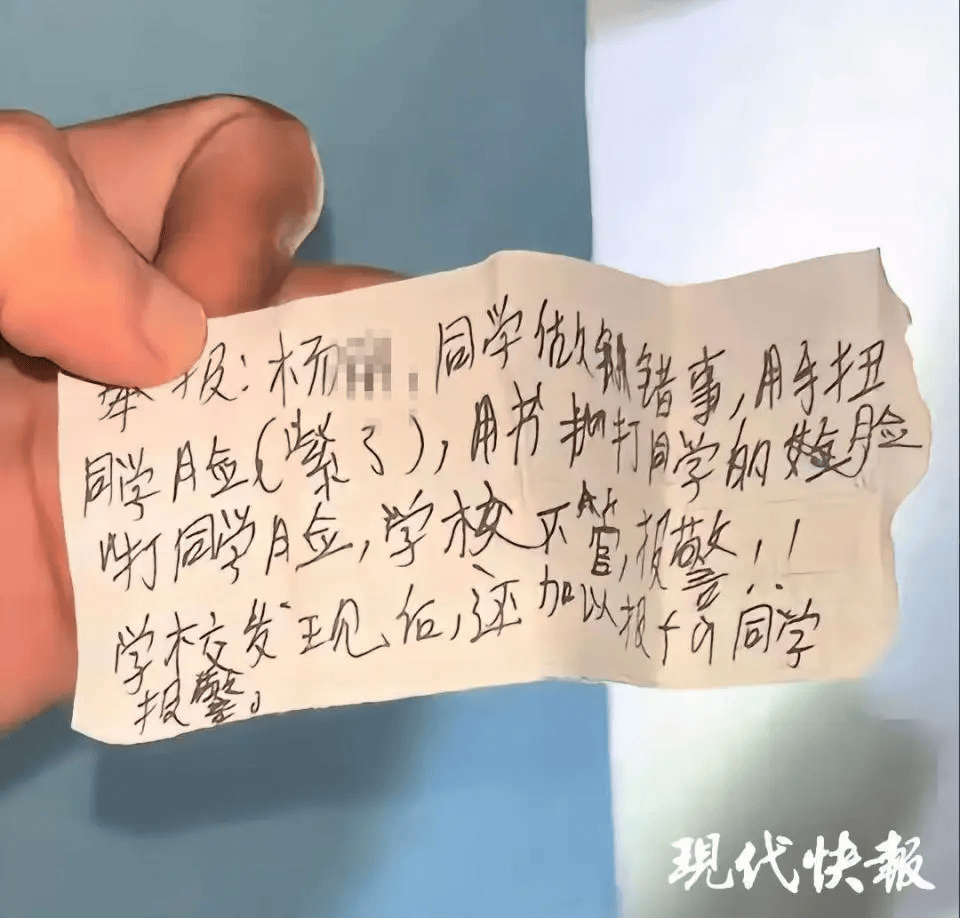 举报：杨 同学做错事，用手扭
同学脸（紫了），用书打同学的脸
打同学脸，学校不管，报警！！
学校发现后，还加以报fq同学
报警。
現代快報